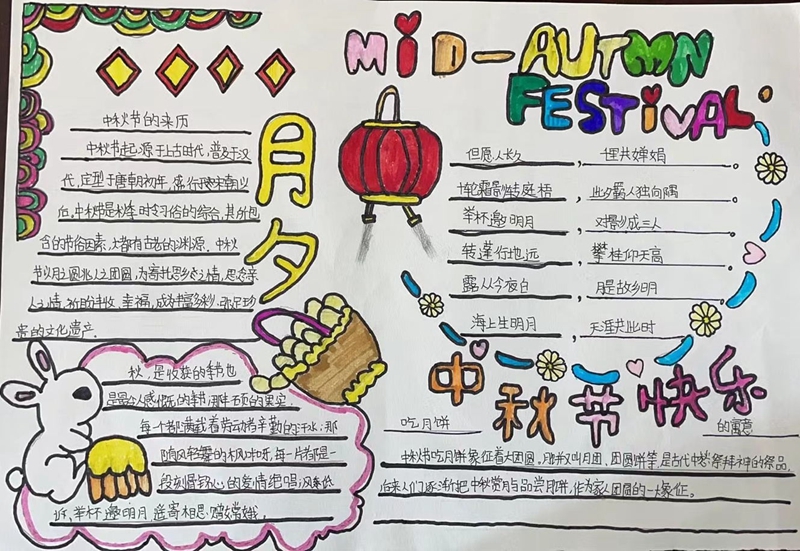 MiD-AUTMN
FESTiVAL
中秋节的来历
中秋节起源于上古时代，普及于汉
代，定型于唐朝初年，盛行于宋朝以
后，中秋节是秋季时令习俗的综合，其所包
含的节俗因素，大都有古老的渊源。中秋
节以月之圆兆人之团圆，为寄托思乡之情，思念亲
人之情，祈盼丰收、幸福，成为丰富多彩、弥足珍
贵的文化遗产。
月夕
但愿人长久，千里共婵娟。
一轮霜影转庭梧，此夕羁人独向隅。
举杯邀明月，对影成三人。
转蓬行地远，攀桂仰天高。
露从今夜白，月是故乡明。
海上生明月，天涯共此时。
秋，是收获的季节也
是最令人感慨的季节，那串串的果实，
每一颗都满载着劳动者辛勤的汗水；那
随风轻舞的枫叶呀，每一片都是一
段刻骨铭心的爱情绝唱；
举杯邀明月，遥寄相思，嫦娥。
中秋节快乐
吃月饼的寓意
中秋节吃月饼象征着大团圆。月饼又叫月团、团圆饼等，是古代中秋祭拜月神的祭品，
后来人们逐渐把中秋赏月与品尝月饼，作为家人团圆的一大象征。